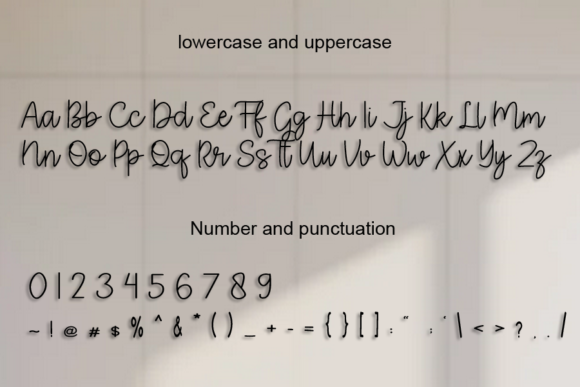 lowercase and uppercase
Aa Bb Cc Dd Ee Ff Gg Hh Ii Jj Kk Ll Mm
Nn Oo Pp Qq Rr Ss Tt Uu Vv Ww Xx Yy Zz
Number and punctuation
0 1 2 3 4 5 6 7 8 9
~ ! @ # $ % ^ & * ( ) _ + - = { } [ ] : " ; ' \ < > ? , . /